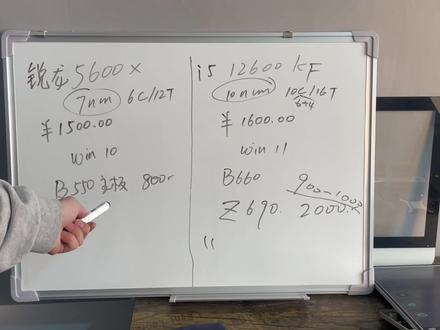 锐龙5600x
7nm 6C/12T
¥1500.00
win 10
B550主板 800
i5 12600KF
10nm 10C/16T
6+4
¥1600.00
win 11
B660 900-1000
Z690. 2000.
11